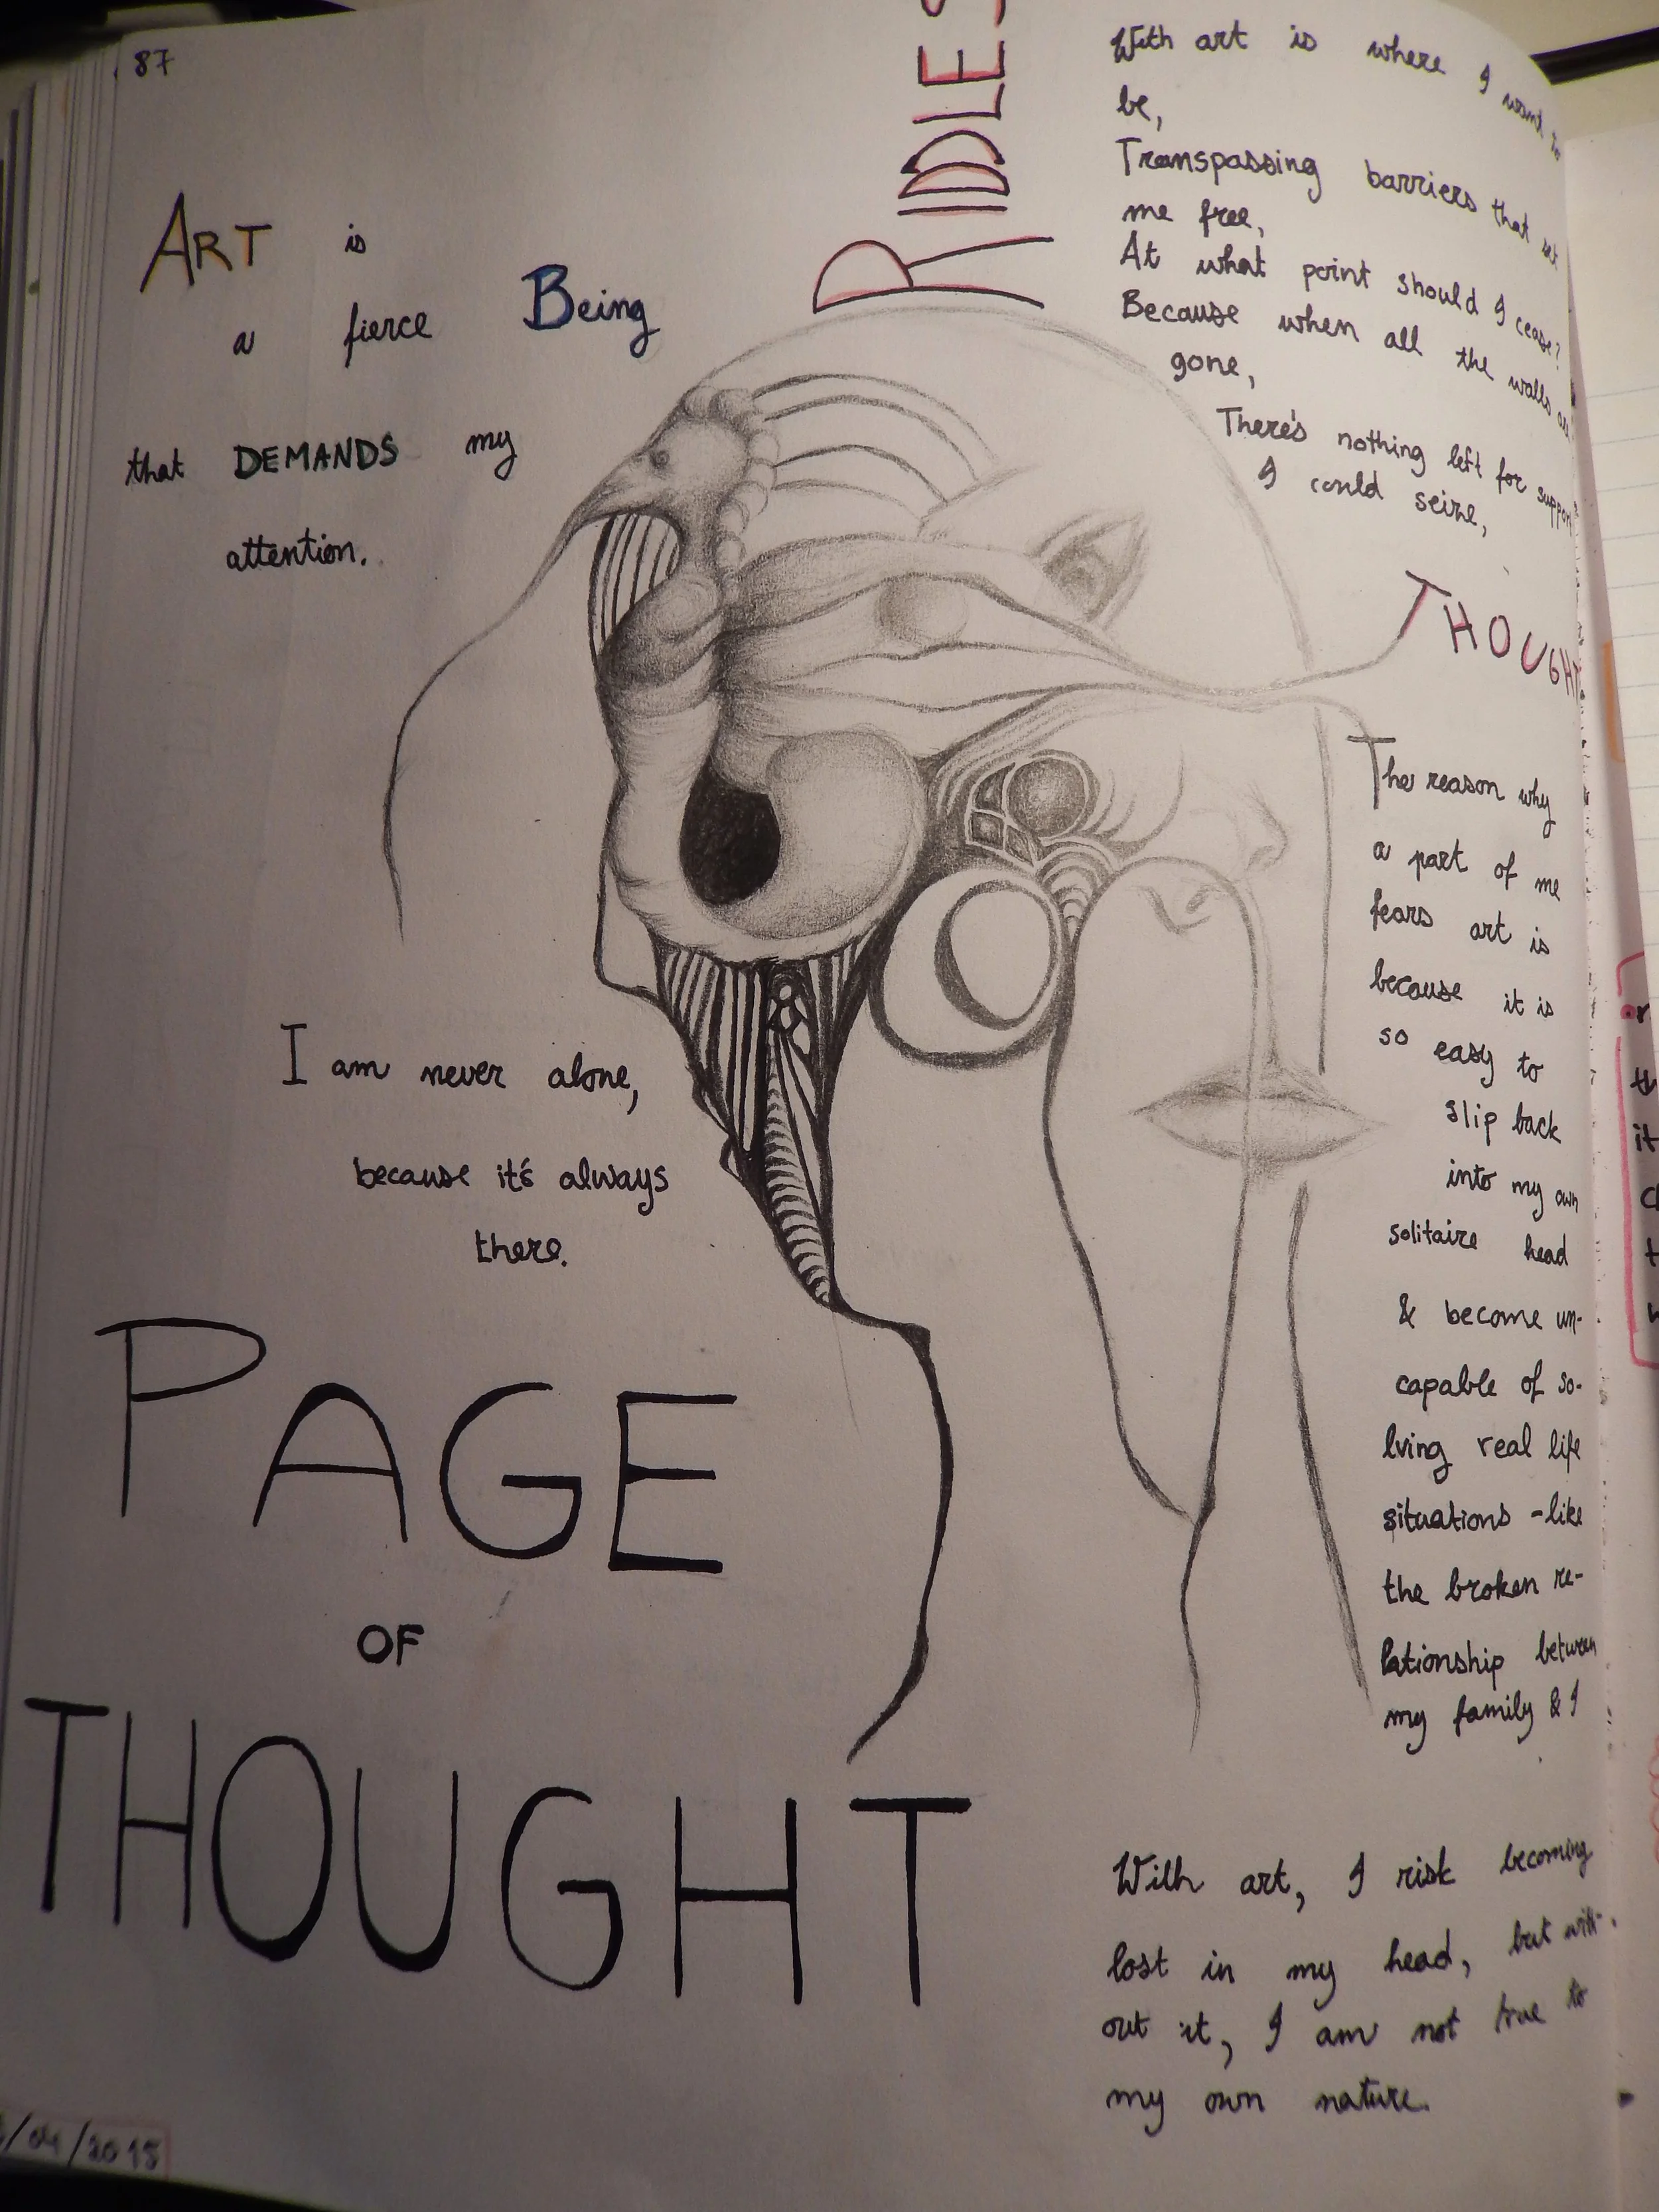 87
ART is
a fierce Being
that DEMANDS my
attention.
I am never alone,
because it's always
there.
PAGE
OF
THOUGHT
/04/2015
RIDLES
With art is where I want to
be,
Transpassing barriers that set
me free,
At what point should I cease?
Because when all the walls are
gone,
There's nothing left for support
I could seize,
THOUGHT
The reason why
a part of me
fears art is
because it is
so easy to
slip back
into my own
solitaire head
& become un-
capable of so-
lving real life
situations - like
the broken re-
lationship between
my family & I
With art, I risk becoming
lost in my head, but with-
out it, I am not true to
my own nature.